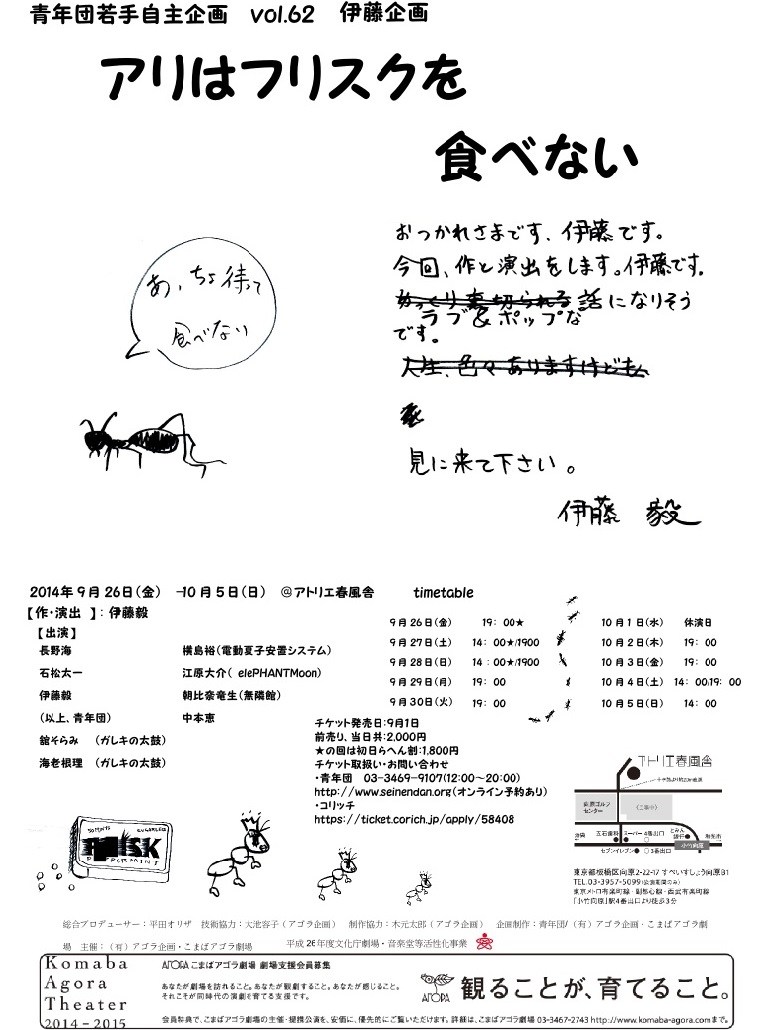 青年団若手自主企画　vol.62　伊藤企画
アリはフリスクを
食べない
あ、ちょ待って
食べない
おつかれさまです、伊藤です。
今回、作と演出をします。伊藤です。
ゆっくり裏切られる話になりそう
ラブ&ポップな
です。
人生、色々ありますけども
見に来て下さい。
伊藤　毅
2014年9月26日(金)　-10月5日(日)　@アトリエ春風舎　timetable
【作・演出 】: 伊藤毅
【出演】
長野海　横島裕(電動夏子安置システム)
石松太一　江原大介( elePHANTMoon)
伊藤毅　朝比奈竜生(無隣館)
(以上、青年団)　中本恵
舘そらみ　(ガレキの太鼓)
海老根理　(ガレキの太鼓)
9月26日(金)　19:00★
9月27日(土)　14:00★/1900
9月28日(日)　14:00★/1900
9月29日(月)　19:00
9月30日(火)　19:00
10月1日(水)　休演日
10月2日(木)　19:00
10月3日(金)　19:00
10月4日(土)　14:00/19:00
10月5日(日)　14:00
チケット発売日:9月1日
前売り、当日共:2,000円
★の回は初日らへん割:1,800円
チケット取扱い・お問い合わせ
・青年団　03-3469-9107(12:00~20:00)
http://www.seinendan.org(オンライン予約あり)
・コリッチ
https://ticket.corich.jp/apply/58408
50 MINTS　SUGARFREE
PEPPERMINT
アトリエ春風舎
荏原ゴルフセンター
(工事中)
池袋
五石歯科
スーパー
4番出口
和光市
小竹向原
セブンイレブン
3番出口
東京都板橋区向原2-22-17 すぺいすしょう向原B1
TEL.03-3957-5099(公演期間のみ)
東京メトロ有楽町線・副都心線・西武有楽町線
「小竹向原」駅4番出口より徒歩3分
総合プロデューサー:平田オリザ　技術協力:大池容子(アゴラ企画)　制作協力:木元太郎(アゴラ企画)　企画制作:青年団/(有)アゴラ企画・こまばアゴラ劇
場　主催:(有)アゴラ企画・こまばアゴラ劇場　平成26年度文化庁劇場・音楽堂等活性化事業
Komaba
Agora
Theater
2014-2015
AГОРА こまばアゴラ劇場 劇場支援会員募集
あなたが劇場を訪れること。あなたが観劇すること。あなたが感じること。
それこそが同時代の演劇を育てる支援です。
AГОРА
観ることが、育てること。
会員特典で、こまばアゴラ劇場の主催・提携公演を、安価に、優先的にご覧いただけます。詳細は、こまばアゴラ劇場 03-3467-2743 http://www.komaba-agora.comまで。